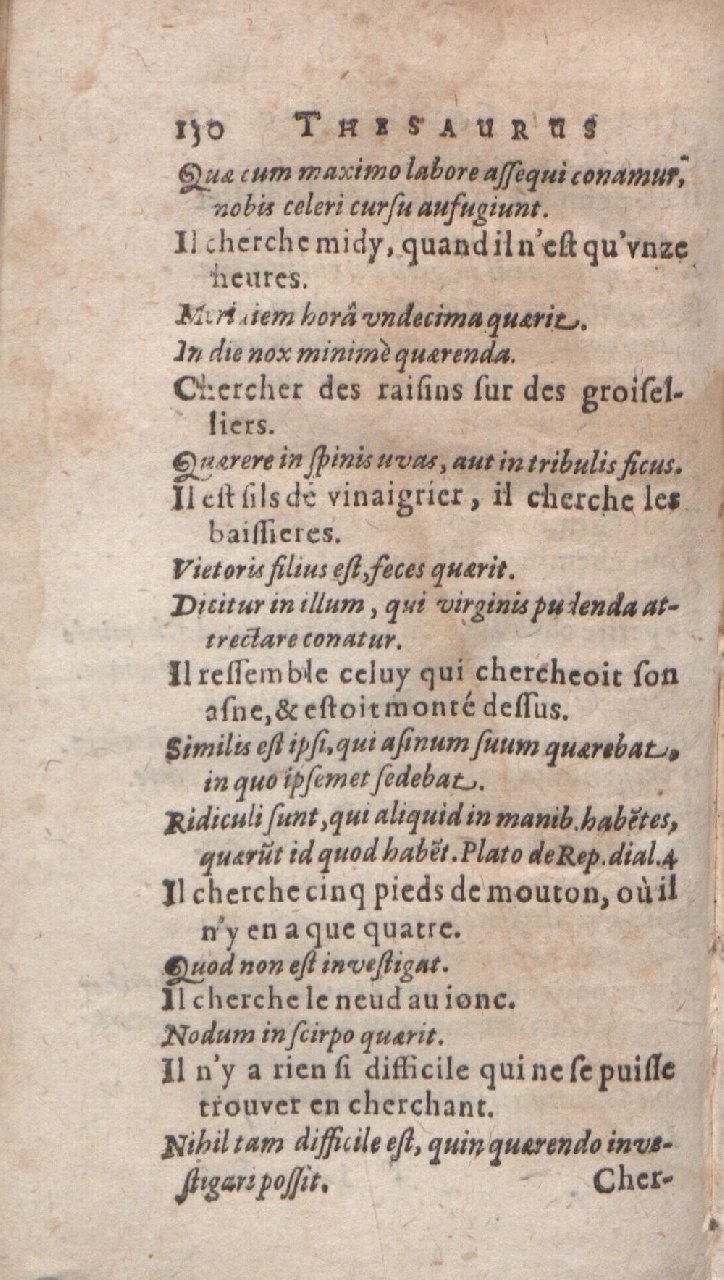 130 THESAURUS
Quæ cum maximo labore aſſequi conamur,
nobis celeri curſu aufugiunt.
Il cherche midy, quand il n'eſt qu'vnze
heures.
Meridiem horâ vndecima quærit.
In die nox minimè quærenda.
Chercher des raiſins ſur des groiſel-
liers.
Quærere in ſpinis uvas, aut in tribulis ficus.
Il eſt fils de vinaigrier, il cherche les
baiſſieres.
Vietoris filius eſt, feces quærit.
Dicitur in illum, qui virginis pudenda at-
trectare conatur.
Il reſſemble celuy qui chercheoit ſon
aſne, & eſtoit monté deſſus.
Similis eſt ipſi, qui aſinum ſuum quærebat,
in quo ipſemet ſedebat.
Ridiculi ſunt, qui aliquid in manib. habẽtes,
quærũt id quod habẽt. Plato de Rep. dial. 4
Il cherche cinq pieds de mouton, où il
n'y en a que quatre.
Quod non eſt inveſtigat.
Il cherche le neud au ionc.
Nodum in ſcirpo quærit.
Il n'y a rien ſi difficile qui ne ſe puiſſe
trouver en cherchant.
Nihil tam difficile eſt, quin quærendo inve-
ſtigari poſſit. Cher-